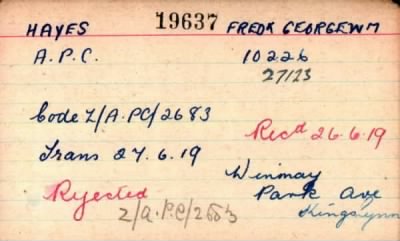 HAYES 19637 FREDK GEORGE WM
A.P.C. 10226
27/23
Code Z/A.PC/2683
Recd 26.6.19
Trans 27.6.19
Winmay
Rejected Park Ave
Z/A.P.C/2683 Kingslynn